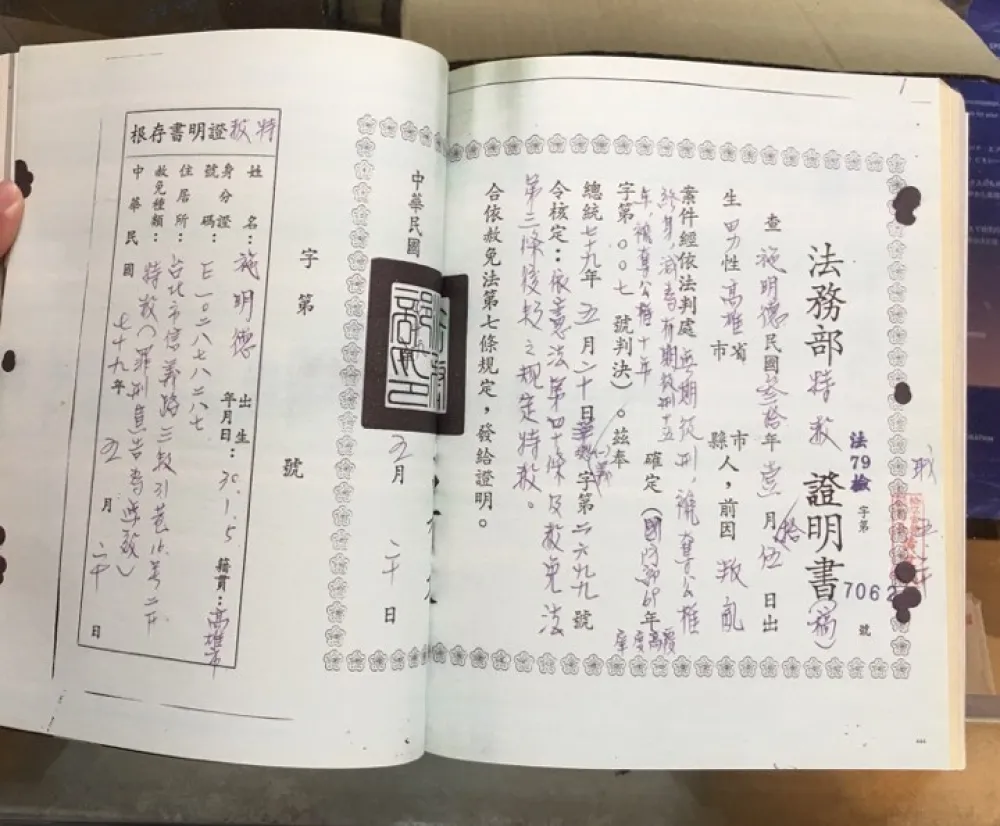 法務部特赦證明書(稿)
法79檢字第7062號
查施明德民國叁拾年壹月拾伍日出
生男性高雄省市 市縣人,前因叛亂
案件經依法判處無期徒刑,褫奪公權
終身減為有期徒刑十五
年,褫奪公權十年
確定(國防部69年
字第〇〇七號判決)。茲奉
總統七十九年五月二十日華總(一)義字第二六九九號
令核定:依憲法第四十條及赦免法
第三條後段之規定特赦。
合依赦免法第七條規定,發給證明。
中華民國
五月二十日
字第號
特赦證明書存根
姓名:施明德 出生年月日:30.1.5 籍貫:高雄市
身分證號碼:
住居所:台北市信義路三段31巷16號二F
赦免種類:特赦(罪刑宣告為無效)
中華民國七十九年五月二十日